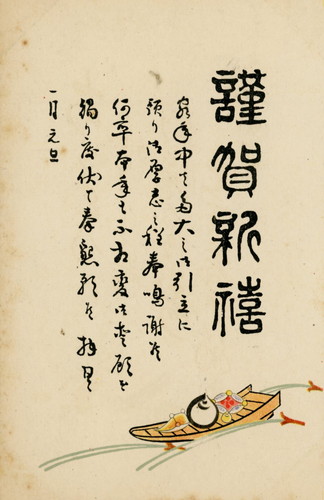 謹賀新禧
客年中は多大之御引立に
預り御厚志之程奉鳴謝候
何卒本年も不相変御愛顧を
賜り度伏て奉懇願候 拝具
一月元旦